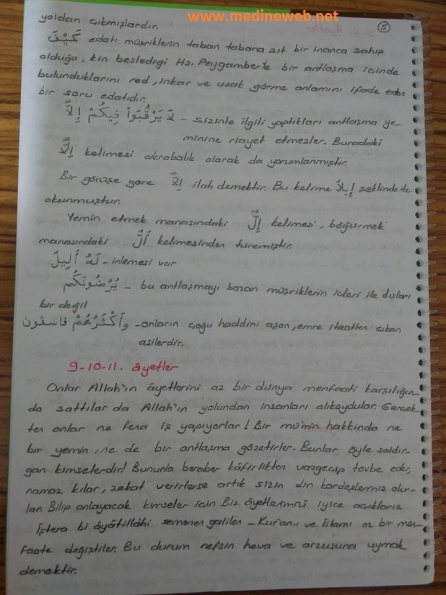 www.medineweb.net
5
yoldan çıkmışlardır.
كَيْفَ edatı müşriklerin taban tabana zıt bir inanca sahip
olduğu, kin beslediği Hz. Peygamber'le bir antlaşma içinde
bulunduklarını red, inkar ve uzak görme anlamını ifade eden
bir soru edatıdır.
لَا يَرْقُبُوا فِيكُمْ إِلًّا - sizinle ilgili yaptıkları antlaşma ye
minine riayet etmezler. Buradaki
إِلًّا kelimesi akrabalık olarak da yorumlanmıştır.
Bir görüşe göre إِلًّا ilah demektir. Bu kelime إِيلًا şeklinde de
okunmuştur.
Yemin etmek manasındaki إِلٌّ kelimesi, böğürmek
manasındaki أَلَّ kelimesinden türemiştir.
لَهُ أَلِيلٌ - inlemesi var
يُرْضُونَكُمْ - bu antlaşmayı bozan müşriklerin içleri ile dışları
bir değil
وَأَكْثَرُهُمْ فَاسِقُونَ - onların çoğu haddini aşan, emre itaatten çıkan
asilerdir.
9-10-11. âyetler
Onlar Allah'ın âyetlerini az bir dünya menfaati karşılığın-
da sattılar da Allah'ın yolundan insanları alıkoydular. Gerçek-
ten onlar ne fena iş yapıyorlar! Bir mü'min hakkında ne
bir yemin, ne de bir antlaşma gözetirler. Bunlar öyle saldır-
gan kimselerdir! Bununla beraber kâfirlikten vazgeçip tevbe eder,
namaz kılar, zekat verirlerse artık sizin din kardeşleriniz olur-
lar. Bilip anlayacak kimseler için Biz âyetlerimizi iyice açıklarız
İşterav bi âyâtillâhi semenen galilen - Kur'anı ve İslamı az bir men
faate değiştiler. Bu durum nefsin heva ve arzusuna uymak
demektir.